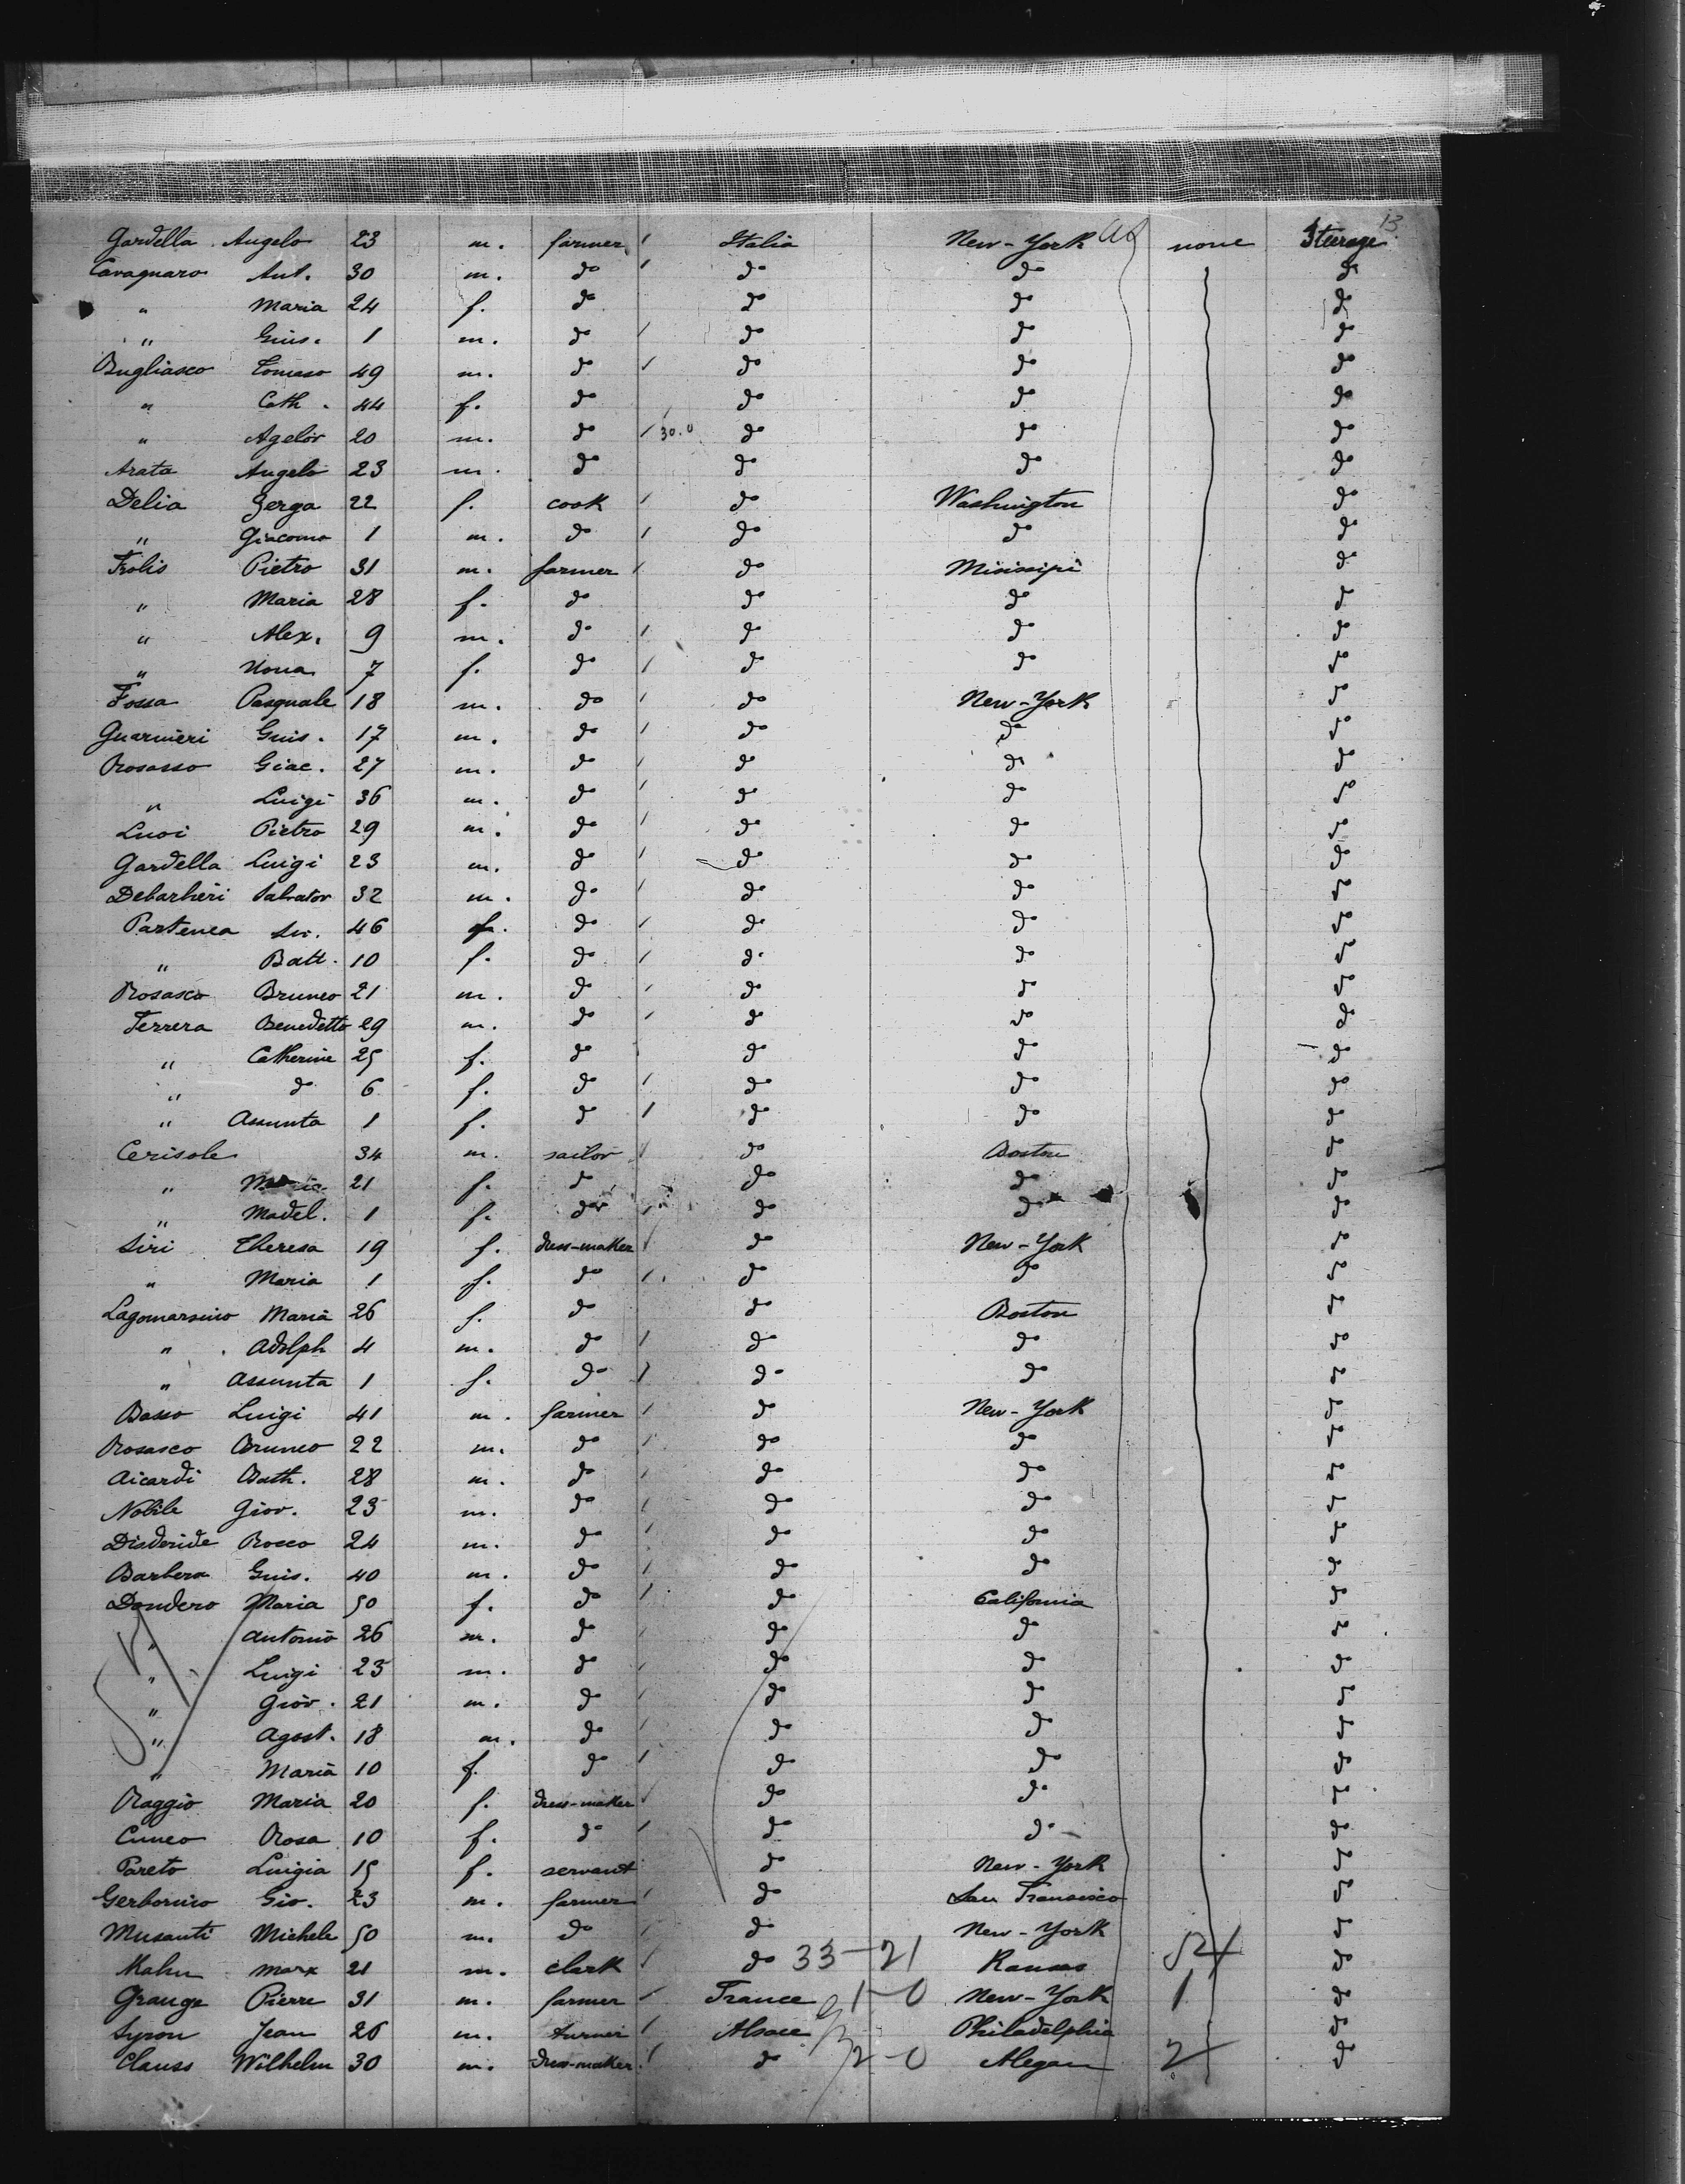 13
Gardella Angelo 23 m. farmer Italia New-York none Steerage
Cavagnaro Ant. 30 m. do do do do
" Maria 24 f. do do do do
" Gius. 1 m. do do do do
Bugliasco Tomaso 49 m. do do do do
" Cath. 44 f. do do do do
" Agelor 20 m. do 30.0 do do do
Arata Angelo 23 m. do do do do
Delia Gerga 22 f. cook do Washington do
" Giacomo 1 m. do do do do
Frolis Pietro 31 m. farmer do Misissipi do
" Maria 28 f. do do do do
" Alex. 9 m. do do do do
" Nona 7 f. do do do do
Fossa Pasquale 18 m. do do New-York do
Guarnieri Guis. 17 m. do do do do
Rosasso Giac. 27 m. do do do do
" Luigi 36 m. do do do do
Luoi Pietro 29 m. do do do do
Gardella Luigi 23 m. do do do do
Debarbieri Salvator 32 m. do do do do
Partenea 46 do do do do
" Batt. 10 f. do do do do
Rosasco Bruneo 21 m. do do do do
Ferrera Benedetto 29 m. do do do do
" Catherine 25 f. do do do do
" do 6 f. do do do do
" Assunta 1 f. do do do do
Cerisole 34 m. sailor do Boston do
" 21 f. do do do do
" Madel. 1 f. do do do do
Siri Theresa 19 f. dress-maker do New-York do
" Maria 1 f. do do do do
Lagomarsino Maria 26 f. do do Boston do
" Adolph 4 m. do do do do
" Assunta 1 f. do do do do
Basso Luigi 41 m. farmer do New-York do
Rosasco Bruneo 22 m. do do do do
Aicardi Bath. 28 m. do do do do
Nobile Giov. 23 m. do do do do
Disderide Rocco 24 m. do do do do
Barbera Guis. 40 m. do do do do
Dondero Maria 50 f. do do California do
" Antonio 26 m. do do do do
" Luigi 23 m. do do do do
" Giov. 21 m. do do do do
" Agost. 18 m. do do do do
" Maria 10 f. do do do do
Raggio Maria 20 f. dress-maker do do do
Cuneo Rosa 10 f. do do do do
Pareto Luigia 15 f. servant do New-York do
Gerbonino Gio. 23 m. farmer do San Fransisco do
Musanti Michele 50 m. do do New-York do
Kahn Marx 21 m. clark do 33-21 Kansas 54 do
Grange Pierre 31 m. farmer France 1-0 New-York 1 do
Syron Jean 26 m. turner Alsace Philadelphia do
Clauss Wilhelm 30 m. dress-maker do 2-0 Alegan 2 do